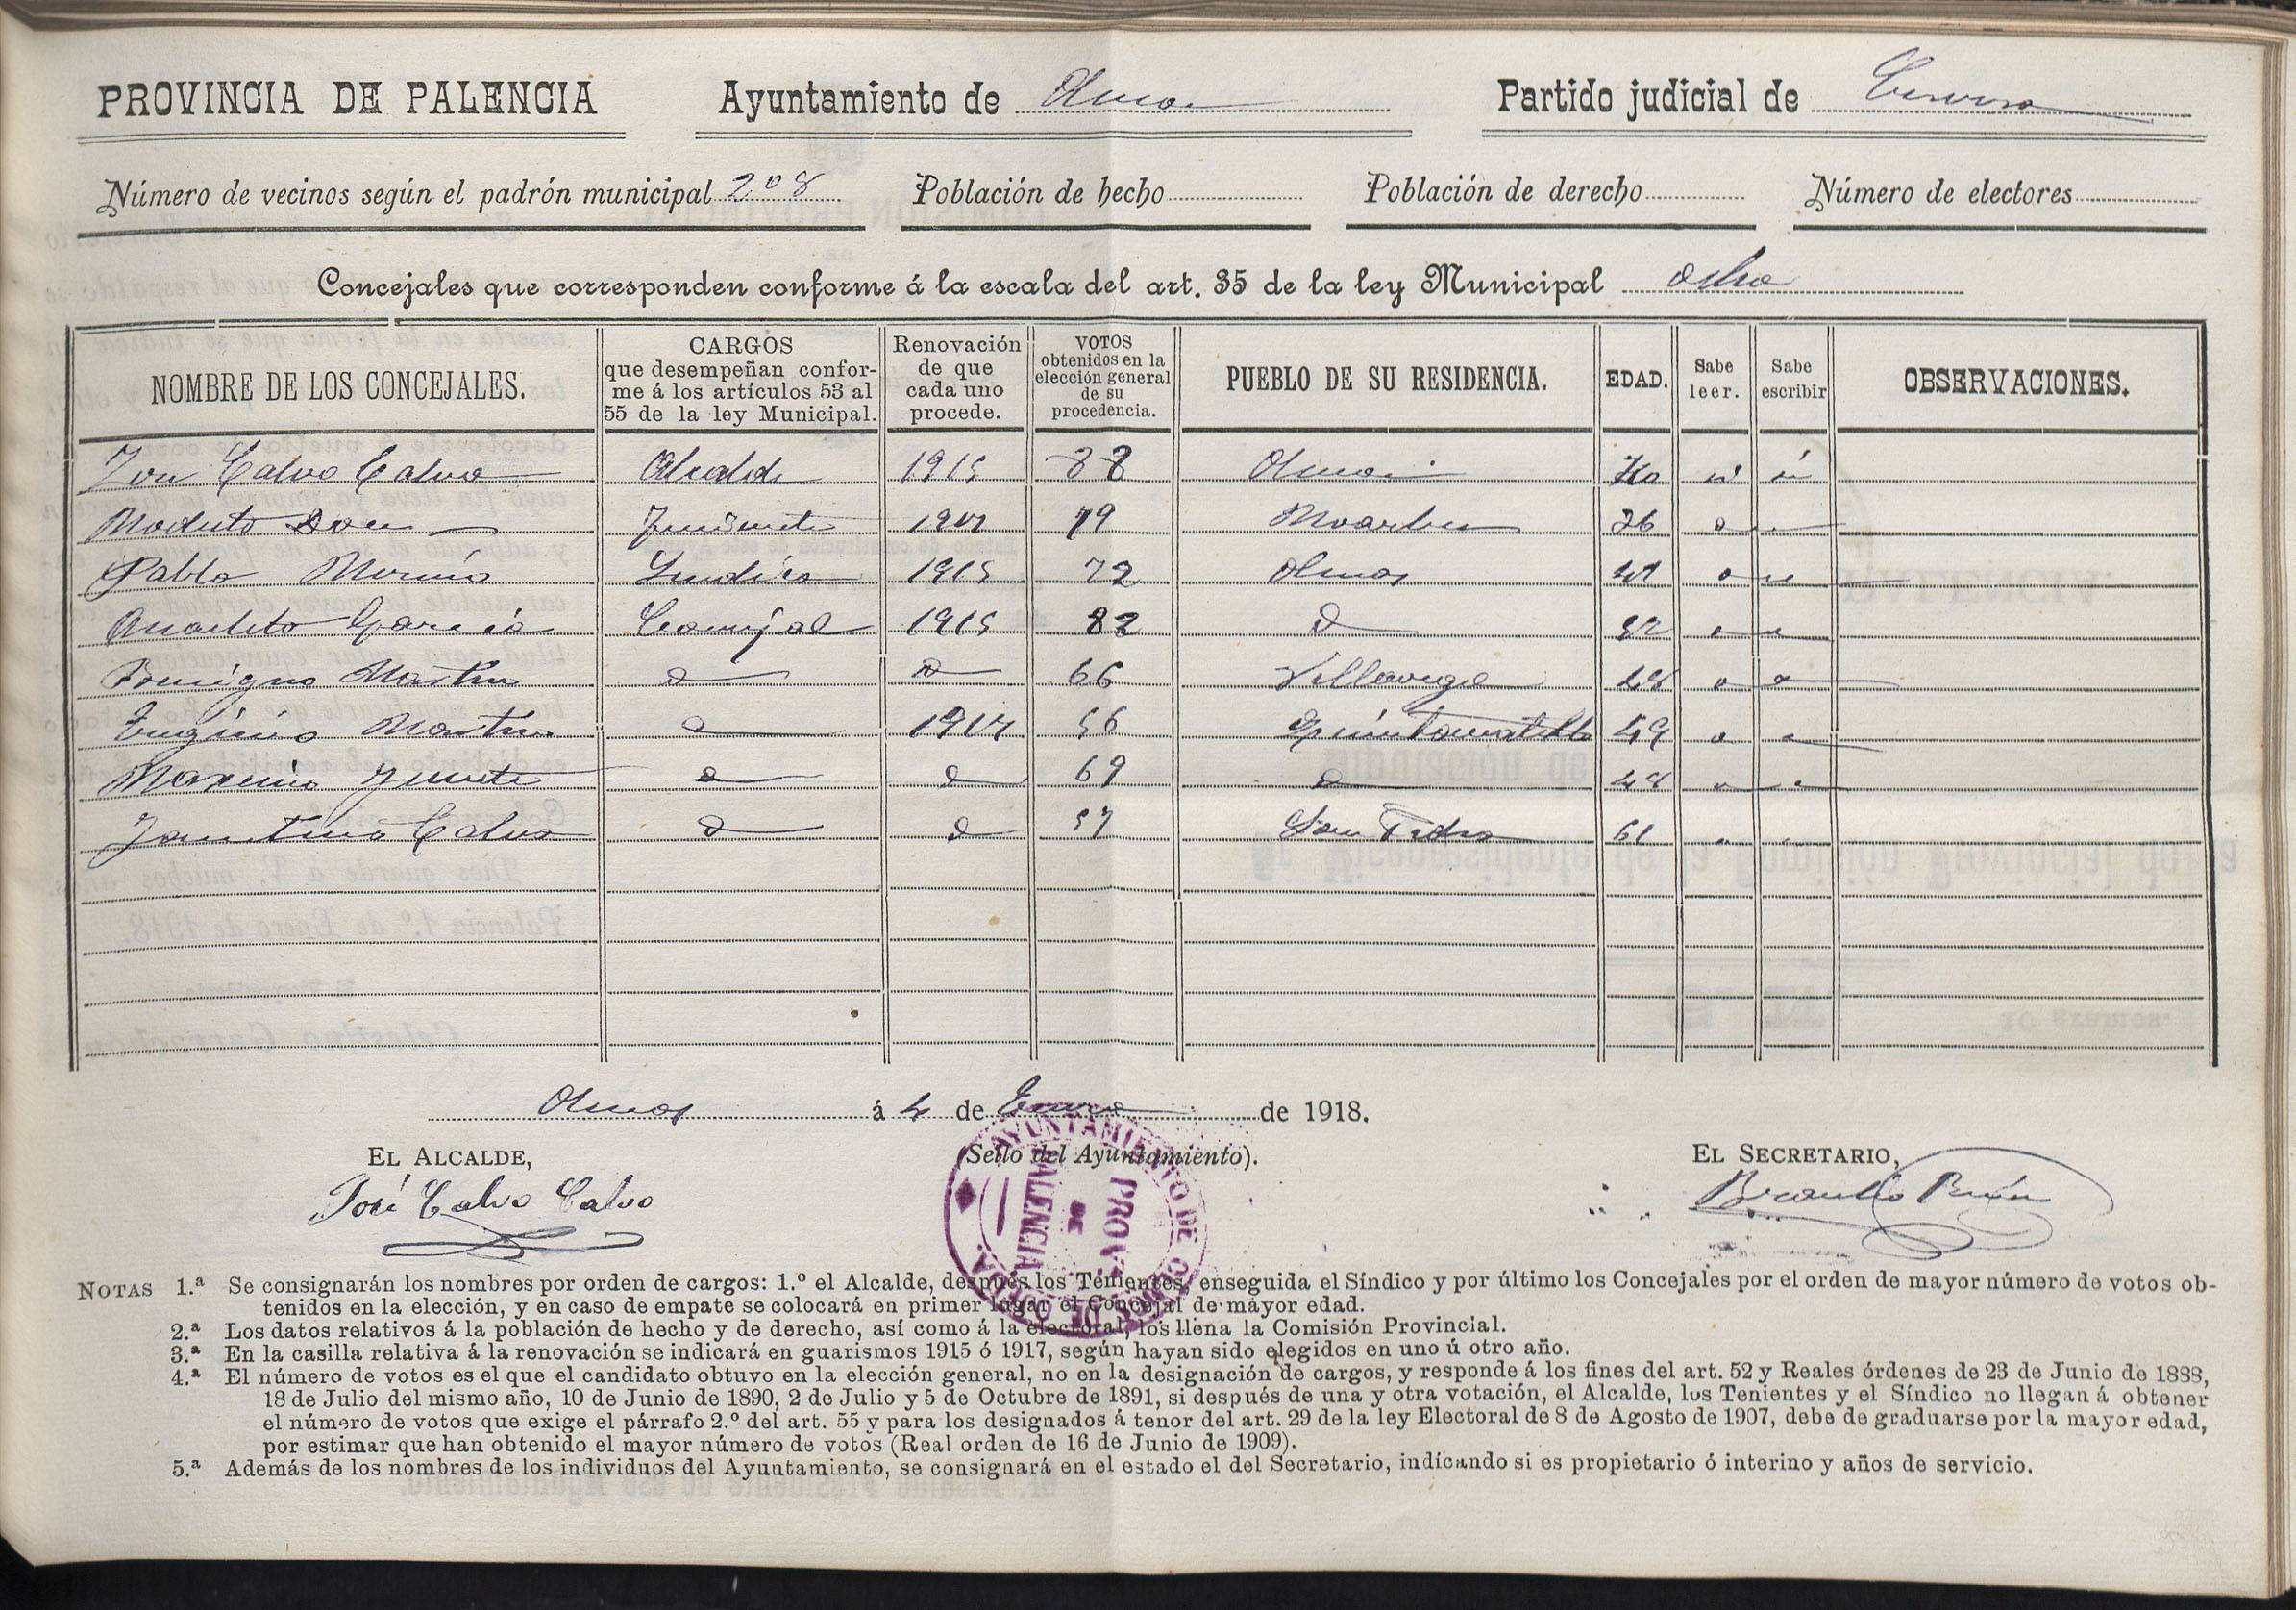 PROVINCIA DE PALENCIA Ayuntamiento de Olmos Partido judicial de Cervera
Número de vecinos según el padrón municipal 208 Población de hecho Población de derecho Número de electores
Concejales que corresponden conforme á la escala del art. 35 de la ley Municipal ocho
NOMBRE DE LOS CONCEJALES. CARGOS que desempeñan conforme á los artículos 53 al 55 de la ley Municipal. Renovación de que cada uno procede. VOTOS obtenidos en la elección general de su procedencia. PUEBLO DE SU RESIDENCIA. EDAD. Sabe leer. Sabe escribir OBSERVACIONES.
José Calvo Calvo Alcalde 1915 88 Olmos si si
Modesto Teniente 1917 79 Moarbes 36
Pablo Merino Sindico 1915 72 Olmos
Anacleto García Concejal 1915 82 D
Benigno Martin D D 66 Villavega 48
Eugenio Martin D 1917 56 Quintanatello 49
Maximo D D 69 D 48
Calvo D D 57 San Pedro 61
Olmos á 4 de Enero de 1918.
EL ALCALDE, (Sello del Ayuntamiento). EL SECRETARIO,
José Calvo Calvo Braulio
AYUNTAMIENTO DE OLMOS DE OJEDA
PROV. DE PALENCIA
NOTAS 1.ª Se consignarán los nombres por orden de cargos: 1.º el Alcalde, después los Tenientes, enseguida el Síndico y por último los Concejales por el orden de mayor número de votos ob-
tenidos en la elección, y en caso de empate se colocará en primer lugar el Concejal de mayor edad.
2.ª Los datos relativos á la población de hecho y de derecho, así como á la electoral, los llena la Comisión Provincial.
3.ª En la casilla relativa á la renovación se indicará en guarismos 1915 ó 1917, según hayan sido elegidos en uno ú otro año.
4.ª El número de votos es el que el candidato obtuvo en la elección general, no en la designación de cargos, y responde á los fines del art. 52 y Reales órdenes de 23 de Junio de 1888,
18 de Julio del mismo año, 10 de Junio de 1890, 2 de Julio y 5 de Octubre de 1891, si después de una y otra votación, el Alcalde, los Tenientes y el Síndico no llegan á obtener
el número de votos que exige el párrafo 2.º del art. 55 y para los designados á tenor del art. 29 de la ley Electoral de 8 de Agosto de 1907, debe de graduarse por la mayor edad,
por estimar que han obtenido el mayor número de votos (Real orden de 16 de Junio de 1909).
5.ª Además de los nombres de los individuos del Ayuntamiento, se consignará en el estado el del Secretario, indicando si es propietario ó interino y años de servicio.